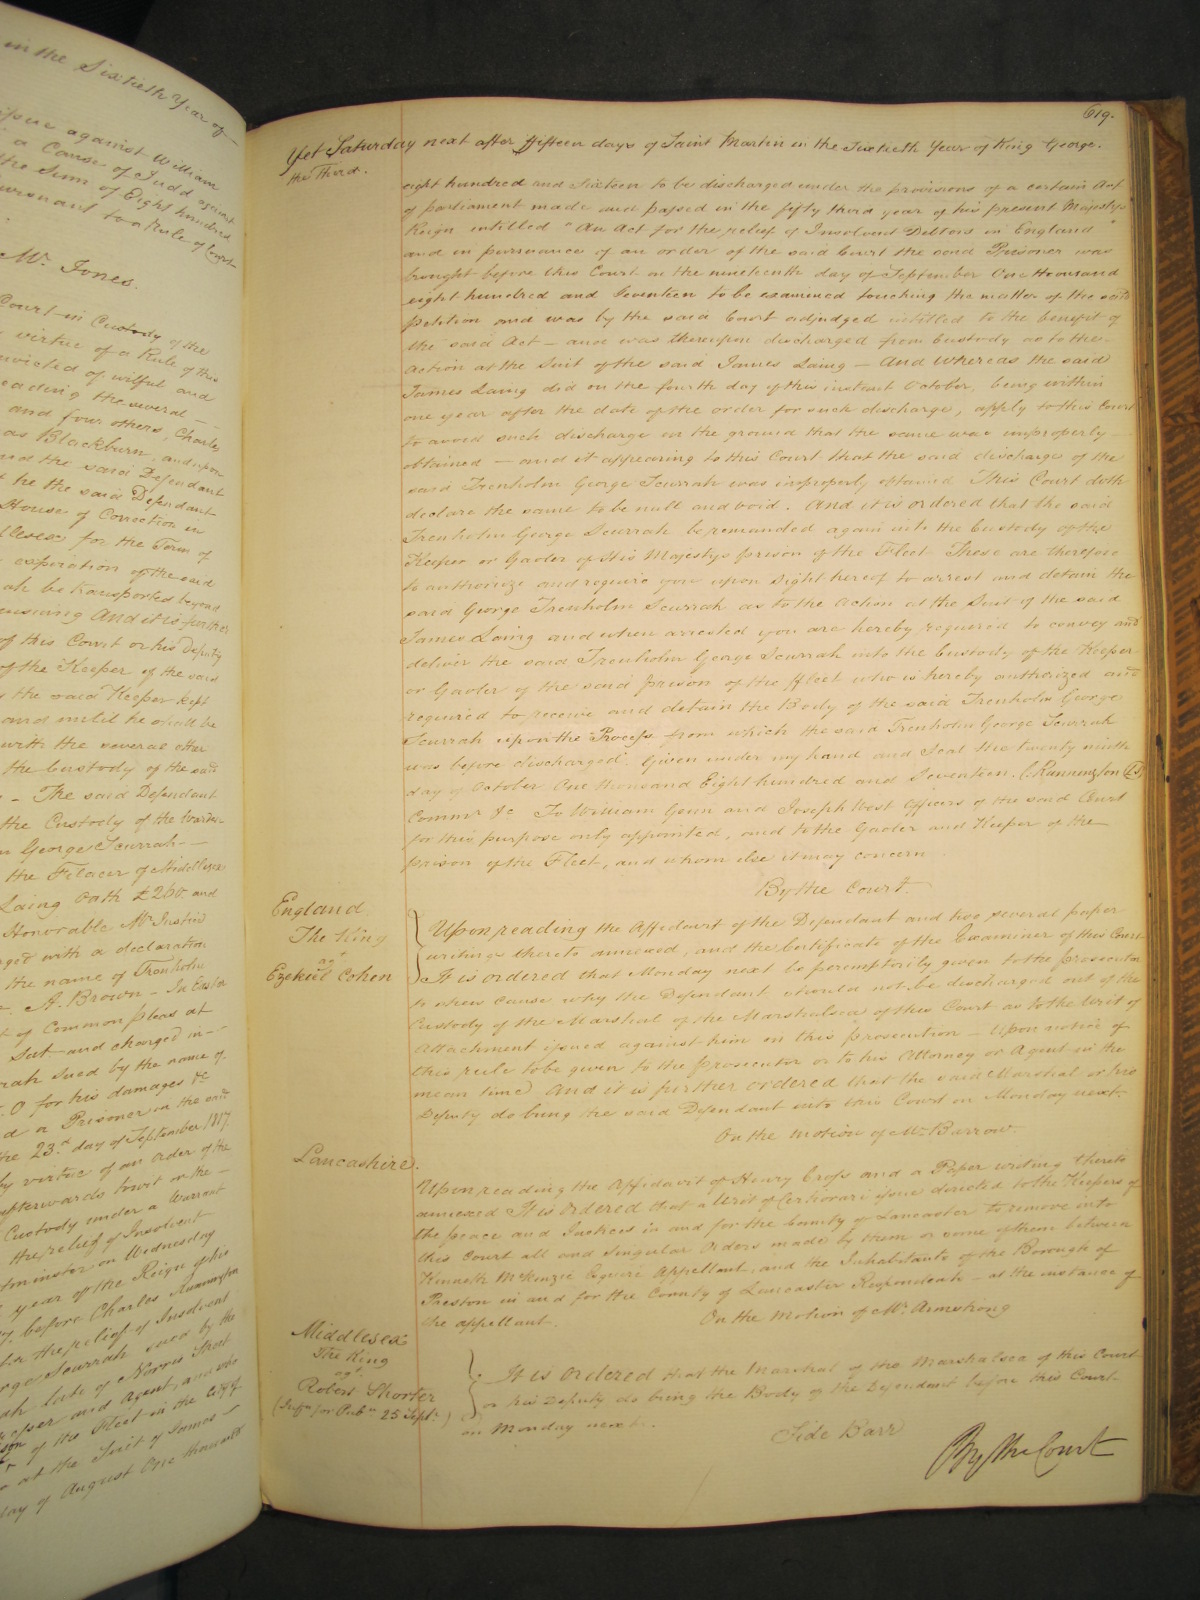 in the Sixtieth Year of
issue against William
a Cause of Judd against
the Sum of Eight hundred
pursuant to a Rule of Court
Mr. Jones.
Court in Custody of the
virtue of a Rule of this
convicted of wilful and
reading the several
and four others, Charles
as Blackburn, and upon
and the said Defendant
he the said Defendant
House of Correction in
for the Term of
expiration of the said
be transported beyond
ensuing And it is further
of this Court or his Deputy
of the Keeper of the said
the said Keeper kept
and until he shall be
with the several other
the Custody of the said
The said Defendant
the Custody of the Warden
George Scurrah
the Filacer of Middlesex
Laing Oath £260. and
Honorable Mr. Justice
with a declaration
the name of Trenholm
A. Brown - In Easter
of Common pleas at
Suit and charged in
sued by the name of
0 for his damages &c
a Prisoner in the said
the 23.d day of September 1817
by virtue of an order of the
afterwards Court in the
Custody under a Warrant
the relief of Insolvent
on Wednesday
year of the Reign of his
before Charles Runnington
for the relief of Insolvent
George Scurrah sued by the
late of Norris Street
and Agent, and who
of the Fleet in the City of
at the Suit of James
day of August One thousand
619.
Yet Saturday next after fifteen days of Saint Martin in the Sixtieth Year of King George.
the Third.
eight hundred and Sixteen to be discharged under the provisions of a certain Act
of parliament made and passed in the fifty third year of his present Majestys
Reign intitled "An Act for the relief of Insolvent Debtors in England"
and in pursuance of an order of the said Court the said Prisoner was
brought before this Court on the nineteenth day of September One thousand
eight hundred and Seventeen to be examined touching the matter of the said
petition and was by the said Court adjudged intitled to the benefit of
the said Act - and was thereupon discharged from Custody as to the
Action at the Suit of the said James Laing - And Whereas the said
James Laing did on the fourth day of this instant October, being within
one year after the date of the order for such discharge, apply to this Court
to avoid such discharge on the ground that the same was improperly
obtained - and it appearing to this Court that the said discharge of the
said Trenholm George Scurrah was improperly obtained This Court doth
declare the same to be null and void. And it is ordered that the said
Trenholm George Scurrah be remanded again into the Custody of the
Keeper or Gaoler of His Majestys prison of the Fleet These are therefore
to authorize and require you upon Sight hereof to arrest and detain the
said George Trenholm Scurrah as to the Action at the Suit of the said
James Laing and when arrested you are hereby required to convey and
deliver the said Trenholm George Scurrah into the Custody of the Keeper
or Gaoler of the said prison of the Fleet who is hereby authorized and
required to receive and detain the Body of the said Trenholm George
Scurrah upon the Process from which the said Trenholm George Scurrah
was before discharged. Given under my hand and Seal this twenty ninth
day of October One thousand Eight hundred and Seventeen. C. Runnington LS
Commr. &c To William Genn and Joseph West Officers of the said Court
for this purpose only appointed, and to the Gaoler and Keeper of the
prison of the Fleet, and whom else it may concern
By the Court.
England.
The King
agt.
Ezekiel Cohen
Upon reading the Affidavit of the Defendant and two several paper
writings thereto annexed, and the Certificate of the Examiner of this Court
It is ordered that Monday next be peremptorily given to the prosecutor
to shew cause why the Defendant should not be discharged out of the
Custody of the Marshal of the Marshalsea of this Court as to the Writ of
Attachment issued against him in this prosecution - Upon notice of
this rule to be given to the prosecutor or to his Attorney or Agent in the
mean time And it is further ordered that the said Marshal or his
Deputy do bring the said Defendant into this Court on Monday next.
On the motion of Mr. Barrow.
Lancashire.
Upon reading the Affidavit of Henry Cross and a Paper writing thereto
annexed It is ordered that a Writ of Certiorari issue directed to the Keepers of
the peace and Justices in and for the County of Lancaster to remove into
this Court all and singular Orders made by them or some of them between
Kenneth McKenzie Esquire Appellant, and the Inhabitants of the Borough of
Preston in and for the County of Lancaster Respondents - at the instance of
the appellant.
On the motion of Mr. Armstrong
Middlesex
The King
agt.
Robert Shorter
(Infn. for Pubn. 25 Septr.)
It is ordered that the Marshal of the Marshalsea of this Court
or his Deputy do bring the Body of the Defendant before this Court
on Monday next.
Side Barr
By the Court